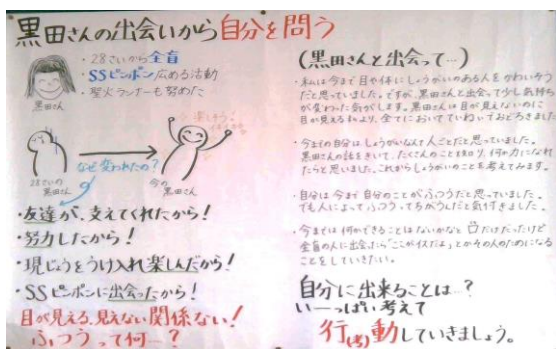 黒田さんの出会いから自分を問う
・28さいから全盲
・SSピンポン広める活動
・聖火ランナーも努めた
黒田さん
楽しそう!
なぜ変われたの?
28さいの
黒田さん
今の
黒田さん
・友達が、支えてくれたから!
・努力したから!
・現じょうをうけ入れ楽しんだから!
・SSピンポンに出会ったから!
目が見える、見えない関係ない!
ふつうって何…?
(黒田さんと出会って…)
・私は今まで目や体にしょうがいのある人をかわいそう
だと思っていました。ですが、黒田さんと出会って少し気持ち
が変わった気がします。黒田さんは目が見えないのに
目が見える私より、全てにおいてていねいでおどろきました
・今までの自分はしょうがいなんて人ごとだと思っていました。
黒田さんの話をきいて、たくさんのことを知り、何か力になれ
たらと思いました。これからしょうがいのことを考えてみます。
・自分は今まで自分のことがふつうだと思っていました。
でも人によってふつうってちがうんだと気付きました。
・今までは何かできることはないかなと口だけだったけど
全盲の人に出会ったら「ここがイスだよ」とかその人のためになる
ことをしていきたい。
自分に出来ることは…?
い〜っぱい考えて
行動していきましょう。